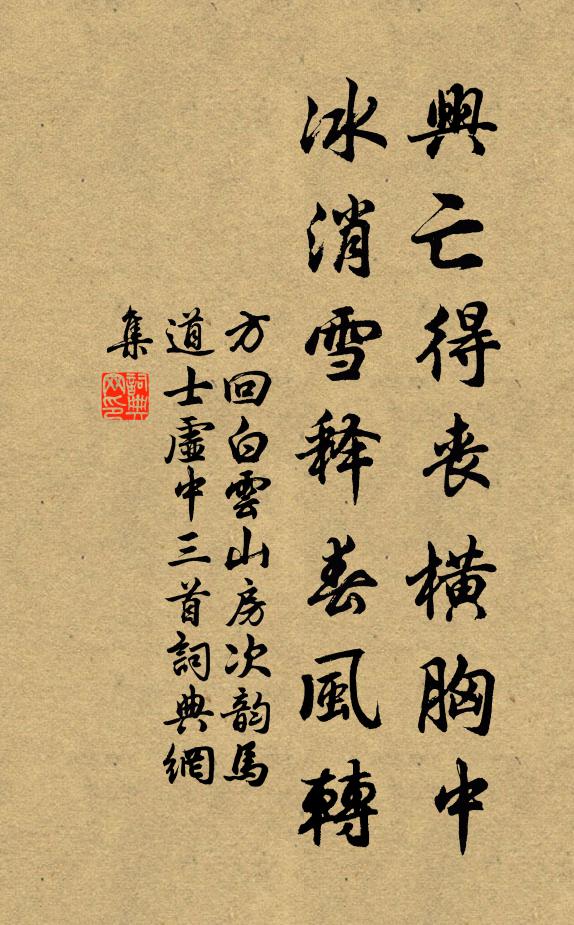 興亡得喪橫胸中
冰消雪释春風轉
方回白雲山房次韵馬
道士虛中三首詞典網
集
詞典
网印